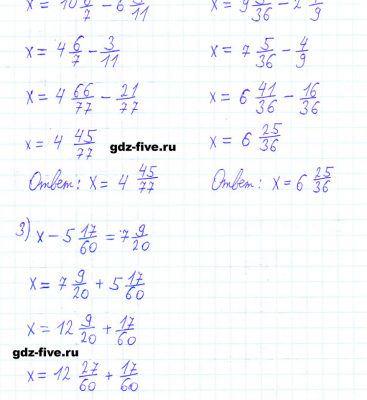 x = 10 6/7 − 6 3/11
x = 4 6/7 − 3/11
x = 4 66/77 − 21/77
x = 4 45/77
gdz-five.ru
Ответ: x = 4 45/77
x = 9 5/36 − 2 4/9
x = 7 5/36 − 4/9
x = 6 41/36 − 16/36
x = 6 25/36
Ответ: x = 6 25/36
3) x − 5 17/60 = 7 9/20
x = 7 9/20 + 5 17/60
x = 12 9/20 + 17/60
gdz-five.ru
x = 12 27/60 + 17/60